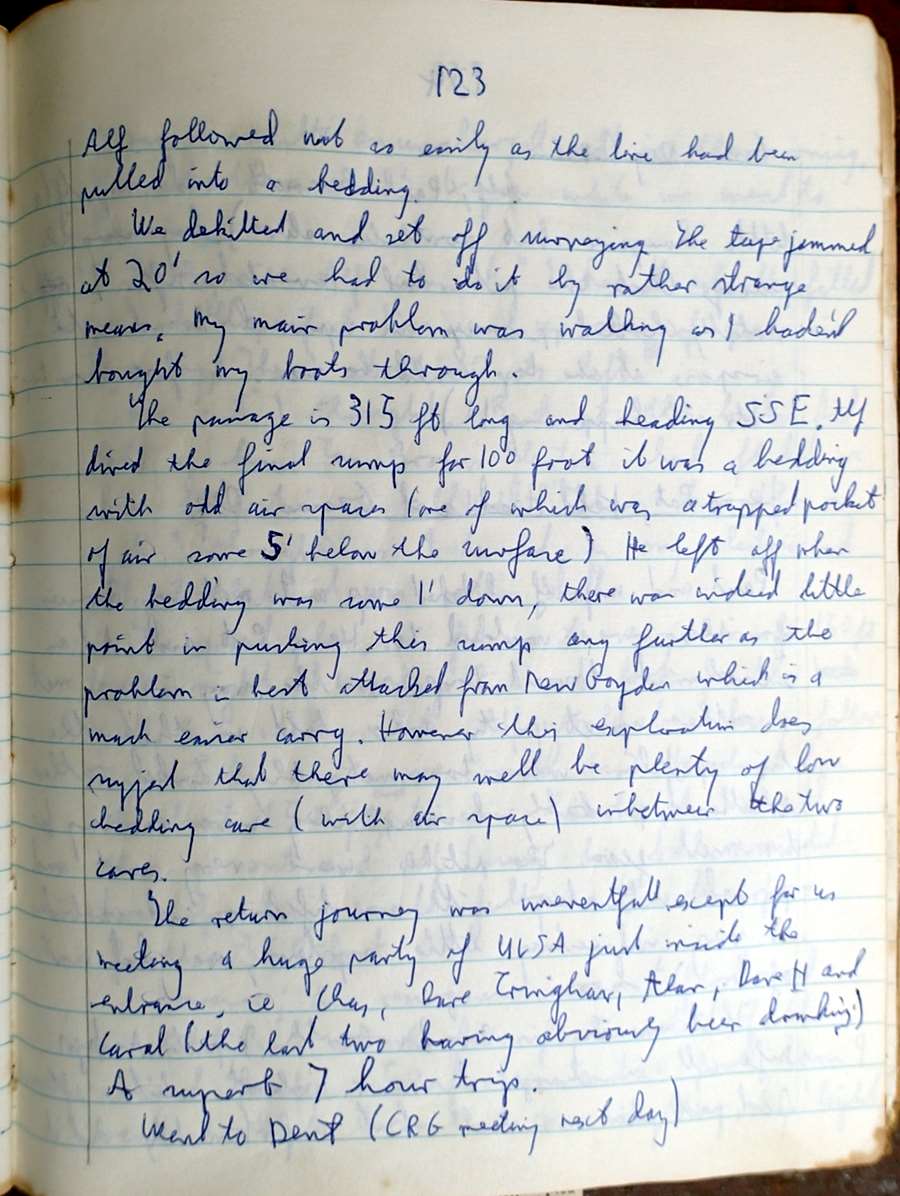 123
Alf followed not so easily as the line had been
pulled into a bedding.
We dekitted and set off surveying. The tape jammed
at 20' so we had to do it by rather strange
means. My main problem was walking as I hadn't
bought my boots through.
The passage is 315 ft long and heading SSE. Alf
dived the final sump for 100 foot it was a bedding
with odd air spaces (one of which was a trapped pocket
of air some 5' below the surface) He left off when
the bedding was some 1' down, there was indeed little
point in pushing this sump any further as the
problem is best attacked from New Goyden which is a
much easier carry. However this exploration does
suggest that there may well be plenty of low
bedding cave (with air space) inbetween the two
caves.
The return journey was uneventfull except for us
meeting a huge party of ULSA just inside the
entrance, ie Chas, Dave Tringham, Alan, Dave H and
Carol (the last two having obviously been drinking!)
A superb 7 hour trip.
Went to Dent (CRG meeting next day)